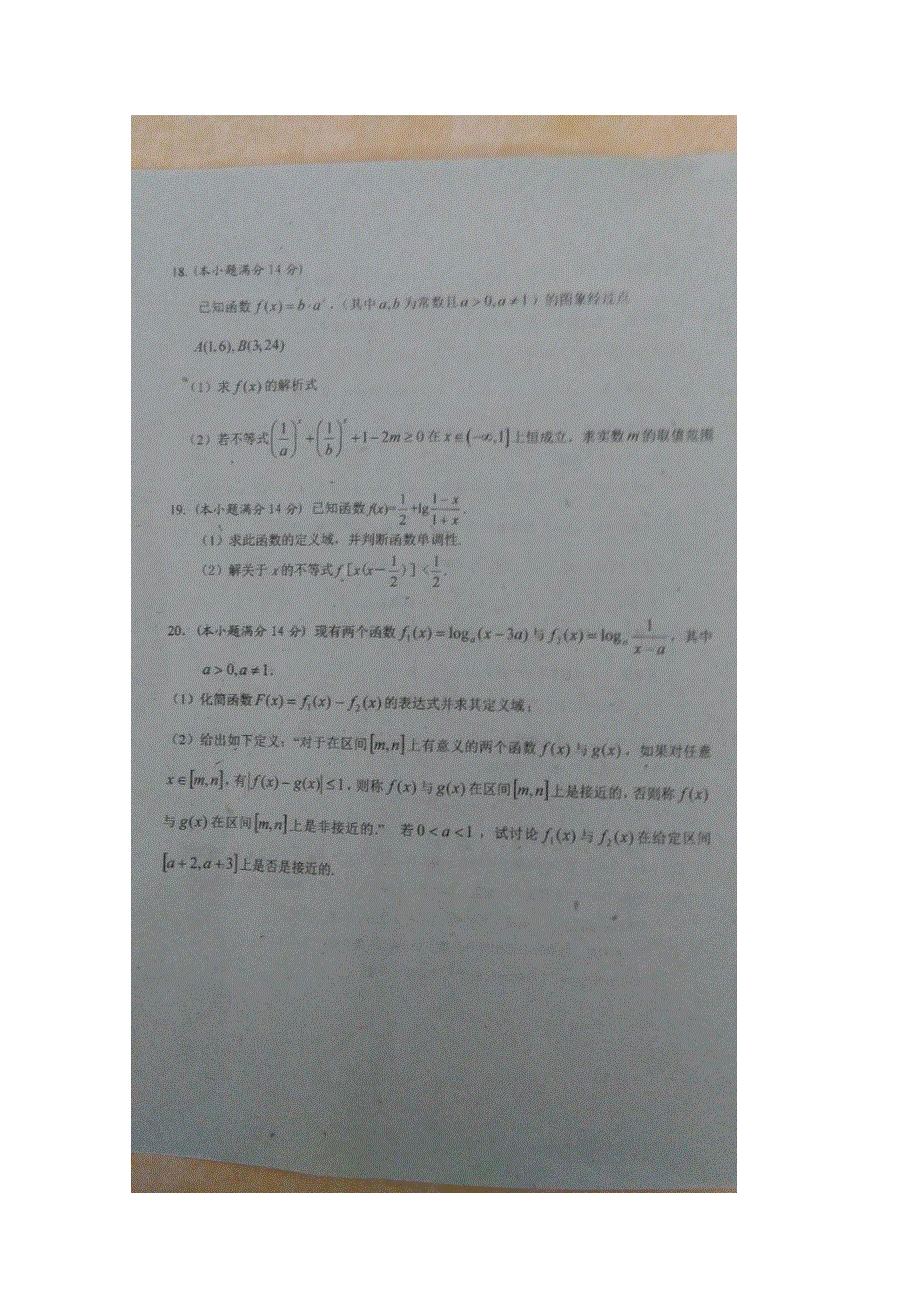 18. (本小题满分 14 分)
已知函数 f(x) = b · aˣ, (其中 a,b 为常数且 a > 0, a ≠ 1) 的图象经过点
A(1,6), B(3,24)
(1) 求 f(x) 的解析式
(2) 若不等式 (1/a)ˣ + (1/b)ˣ + 1 − 2m ≥ 0 在 x ∈ (−∞,1] 上恒成立, 求实数 m 的取值范围
19. (本小题满分 14 分) 已知函数 f(x)= 1/2 +lg (1−x)/(1+x).
(1) 求此函数的定义域, 并判断函数单调性.
(2) 解关于 x 的不等式 f [x(x− 1/2)] < 1/2.
20. (本小题满分 14 分) 现有两个函数 f₁(x) = logₐ(x − 3a) 与 f₂(x) = logₐ 1/(x − a), 其中
a > 0, a ≠ 1.
(1) 化简函数 F(x) = f₁(x) − f₂(x) 的表达式并求其定义域;
(2) 给出如下定义: “对于在区间 [m,n] 上有意义的两个函数 f(x) 与 g(x), 如果对任意
x ∈ [m,n], 有 |f(x) − g(x)| ≤ 1, 则称 f(x) 与 g(x) 在区间 [m,n] 上是接近的, 否则称 f(x)
与 g(x) 在区间 [m,n] 上是非接近的.” 若 0 < a < 1, 试讨论 f₁(x) 与 f₂(x) 在给定区间
[a + 2, a + 3] 上是否是接近的.